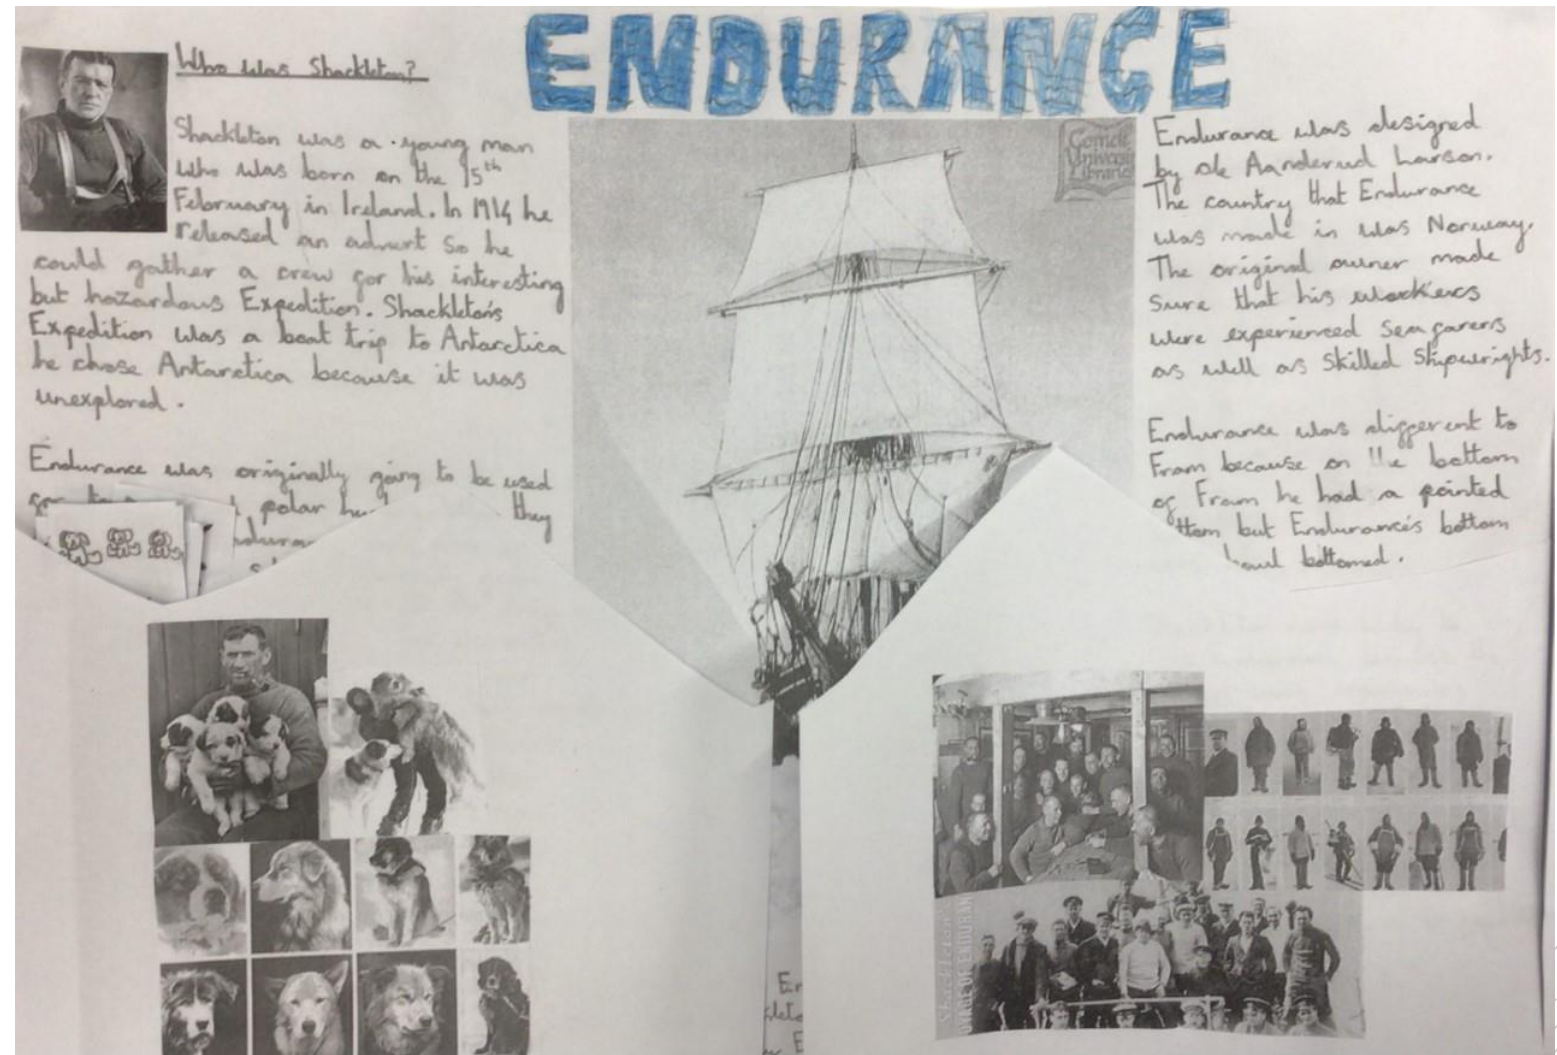 ENDURANCE
Who was Shackleton?
Shackleton was a young man
who was born on the 15th
February in Ireland. In 1914 he
released an advert so he
could gather a crew for his interesting
but hazardous Expedition. Shackleton's
Expedition was a boat trip to Antarctica
he chose Antarctica because it was
unexplored.
Endurance was originally going to be used
polar they
Cornell
University
Library
Endurance was designed
by Ole Aanderud Larson.
The country that Endurance
was made in was Norway.
The original owner made
sure that his workers
were experienced seafarers
as well as skilled shipwrights.
Endurance was different to
Fram because on the bottom
of Fram he had a pointed
but Endurance's bottom
bottomed.